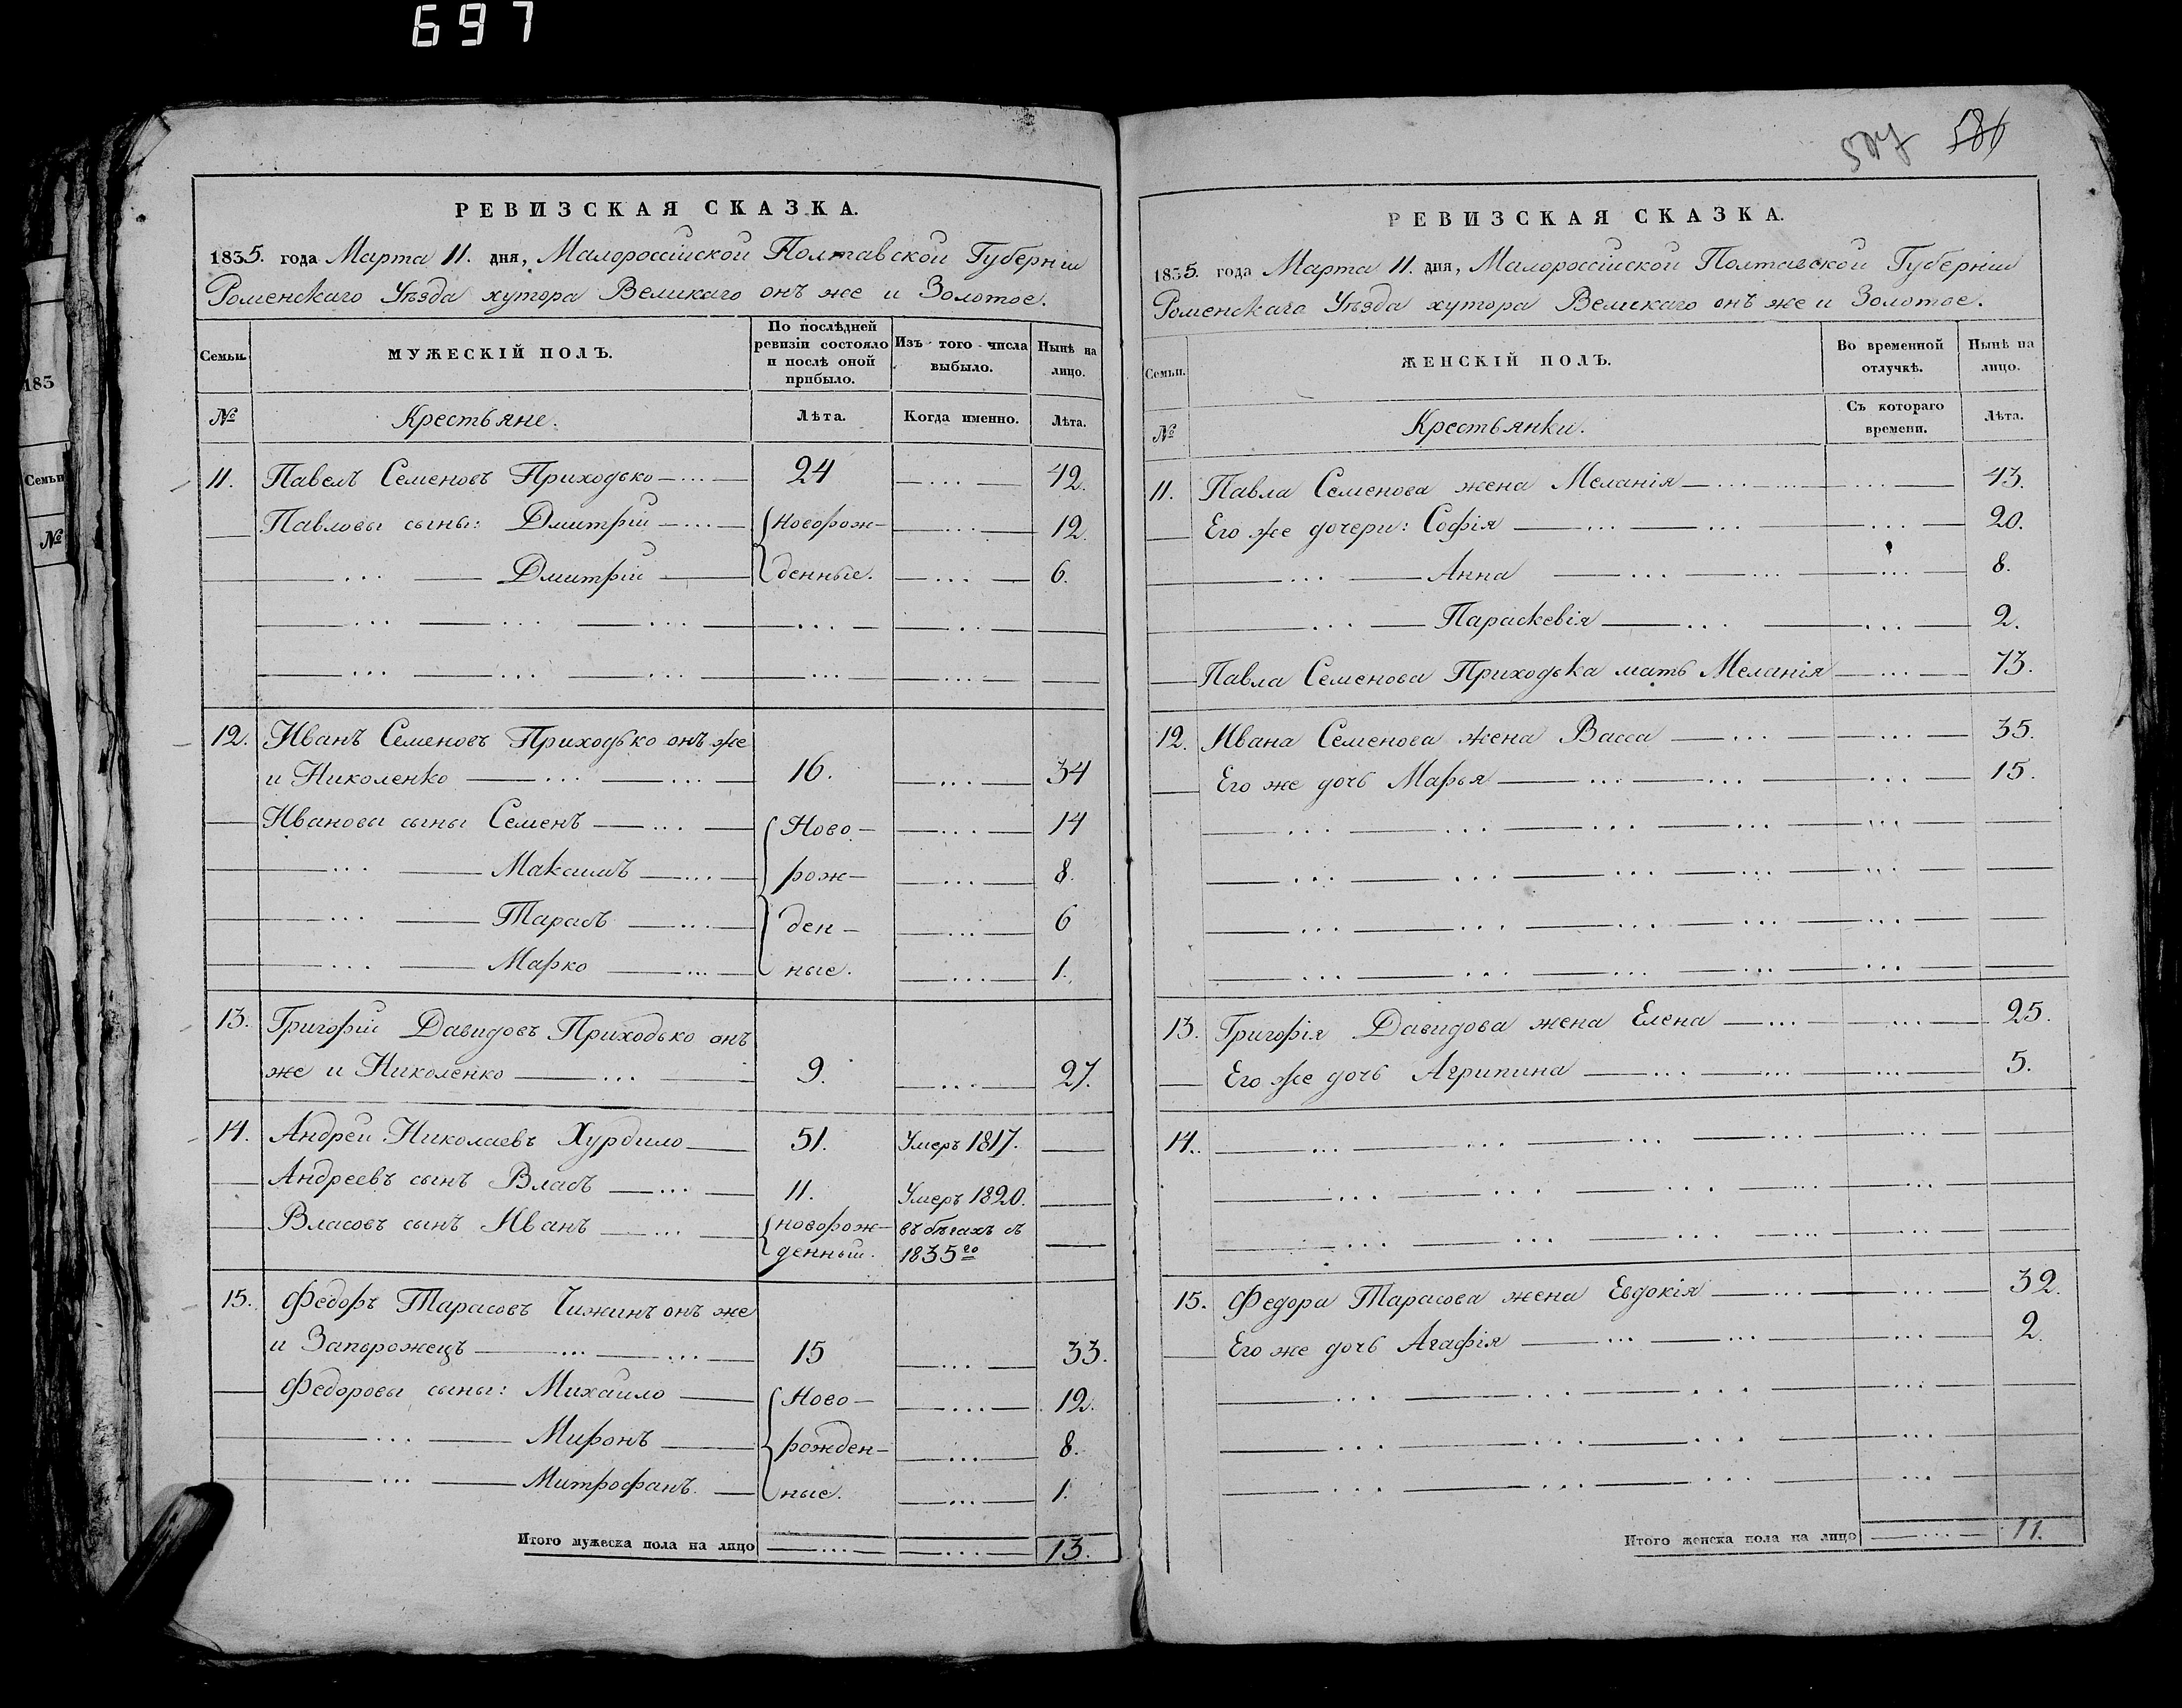 697
586
РЕВИЗСКАЯ СКАЗКА.
1835. года Марта 11. дня, Малороссійской Полтавской Губерніи
Роменскаго Уѣзда хутора Великаго онъ же и Золотое.
Семьи.
МУЖЕСКІЙ ПОЛЪ.
По послѣдней ревизіи состояло и послѣ оной прибыло.
Изъ того числа выбыло.
Нынѣ на лицо.
№
Крестьяне.
Лѣта.
Когда именно.
Лѣта.
11. Павелъ Семеновъ Приходько 24 42.
Павловы сыны: Дмитрій Новорож- 12.
Дмитрій денные. 6.
12. Иванъ Семеновъ Приходько онъ же
и Николенко 16. 34
Ивановы сыны Семенъ Ново- 14
Максимъ рож- 8.
Тарасъ ден- 6
Марко ные. 1.
13. Григорій Давидовъ Приходько онъ
же и Николенко 9. 27.
14. Андрей Николаевъ Хурдило 51. Умеръ 1817.
Андреевъ сынъ Власъ 11. Умеръ 1820.
Власовъ сынъ Иванъ новорож- въ бѣгахъ съ
денный. 1835го
15. Федоръ Тарасовъ Чижинъ онъ же
и Запорожецъ 15 33.
Федоровы сыны: Михайло Ново- 12.
Миронъ рожден- 8.
Митрофанъ. ные. 1.
Итого мужеска пола на лицо 13.
РЕВИЗСКАЯ СКАЗКА.
1835. года Марта 11. дня, Малороссійской Полтавской Губерніи
Роменскаго Уѣзда хутора Великаго онъ же и Золотое.
Семьи.
ЖЕНСКІЙ ПОЛЪ.
Во временной отлучкѣ.
Нынѣ на лицо.
№
Крестьянки.
Съ котораго времени.
Лѣта.
11. Павла Семенова жена Меланія 43.
Его же дочери: Софія 20.
Анна 8.
Параскевія 2.
Павла Семенова Приходька мать Меланія 73.
12. Ивана Семенова жена Васса 35.
Его же дочь Марья 15.
13. Григорія Давидова жена Елена 25.
Его же дочь Агрипина 5.
14.
15. Федора Тарасова жена Евдокія 32.
Его же дочь Агафія 2.
Итого женска пола на лицо 11.
183
Семьи
№